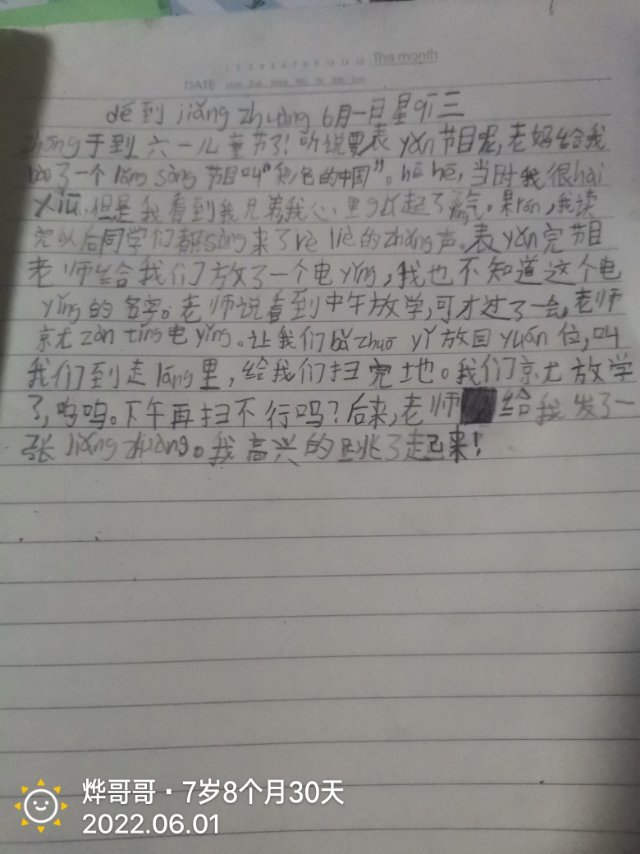 1 2 3 4 5 6 7 8 9 10 11 12 The month
DATE
dé到 jiǎng zhuàng 6月一日星qī三
zhōng于到六一儿童节了!听说要表yǎn节目呢,老妈给我
了一个lǎng sòng节目叫“彩色的中国”。hē hē,当时我很hài
xiū,但是我看到我兄弟我心里gǔ起了勇气。果rán,我读
完以后同学们都sòng来了rè liè的zhǎng声。表yǎn完节目
老师给我们放了一个电yǐng,我也不知道这个电
yǐng的名字。老师说看到中午放学,可才过了一会,老师
京尤zàn tíng电yǐng。让我们把zhuō yǐ放回yuán位,叫
我们到走láng里,给我们扫完地。我们京尤放学
了,呜呜。下午再扫不行吗?后来,老师给我发了一
张jiǎng zhuàng。我高兴的跳了起来!
烨哥哥·7岁8个月30天
2022.06.01